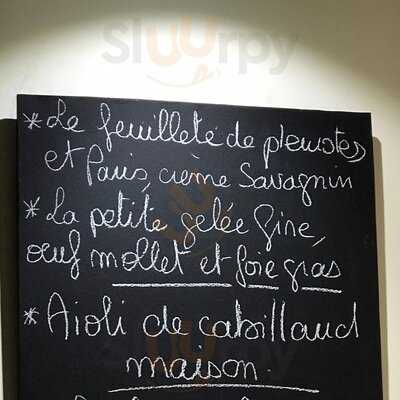 Sluurpy
* Le feuilleté de pleurotes
et Paris, crème Savagnin
* La petite gelée fine,
œuf mollet et foie gras
* Aioli de cabillaud
maison.